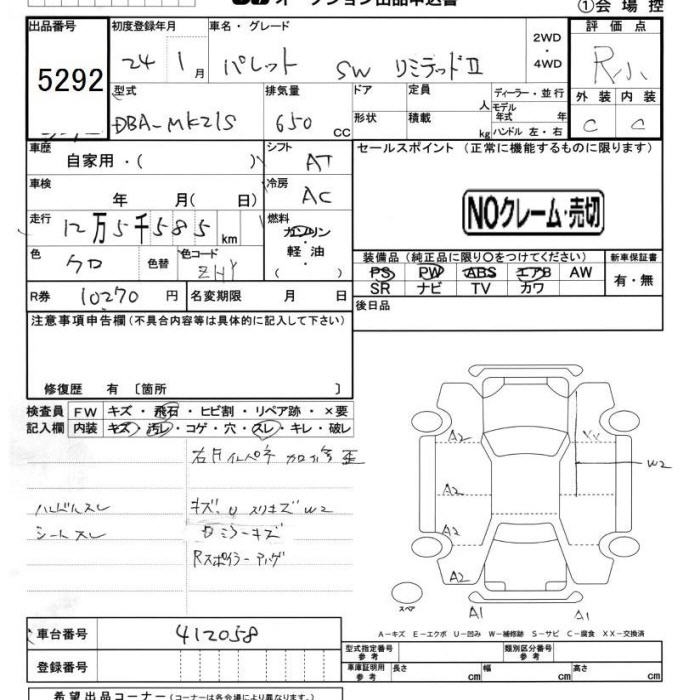 オークション出品申込書
①会場控
出品番号 初度登録年月 車名・グレード 2WD 評価点
5292 24年 1月 パレット SW リミテッドⅡ ・4WD R小
型式 排気量 ドア 定員 ディーラー・並行 外装 内装
DBA-MK21S 650 CC 形状 積載 人 kg モデル年式 年 ハンドル 左・右 C C
車歴 シフト セールスポイント(正常に機能するものに限ります)
自家用・( ) AT
車検 冷房
年 月( 日) AC NOクレーム・売切
走行 燃料
12万5千585km ガソリン・軽油
色 色替 色コード 装備品(純正品に限り○をつけてください) 新車保証書
クロ ZHY PS PW ABS エアB AW 有・無
SR ナビ TV カワ
R券 10270円 名変期限 月 日 後日品
注意事項申告欄(不具合内容等は具体的に記入して下さい)
修復歴 有〔箇所 〕
検査員 FW キズ・飛石・ヒビ割・リペア跡・×要
記入欄 内装 キズ・汚レ・コゲ・穴・スレ・キレ・破レ
ハンドルスレ
シートスレ
キズ、U スリキズ W2
ミラーキズ
Rスポイラー
A2
A2
W2
A2
A2
A2
スペア
A1 A1
A-キズ E-エクボ U-凹み W-補修跡 S-サビ C-腐食 XX-交換済
車台番号 412058
型式指定番号 参考 類別区分番号 参考
登録番号
車庫証明用 参考 長さ cm 幅 cm 高さ cm
希望出品コーナー(コーナーは各会場により異なります。)